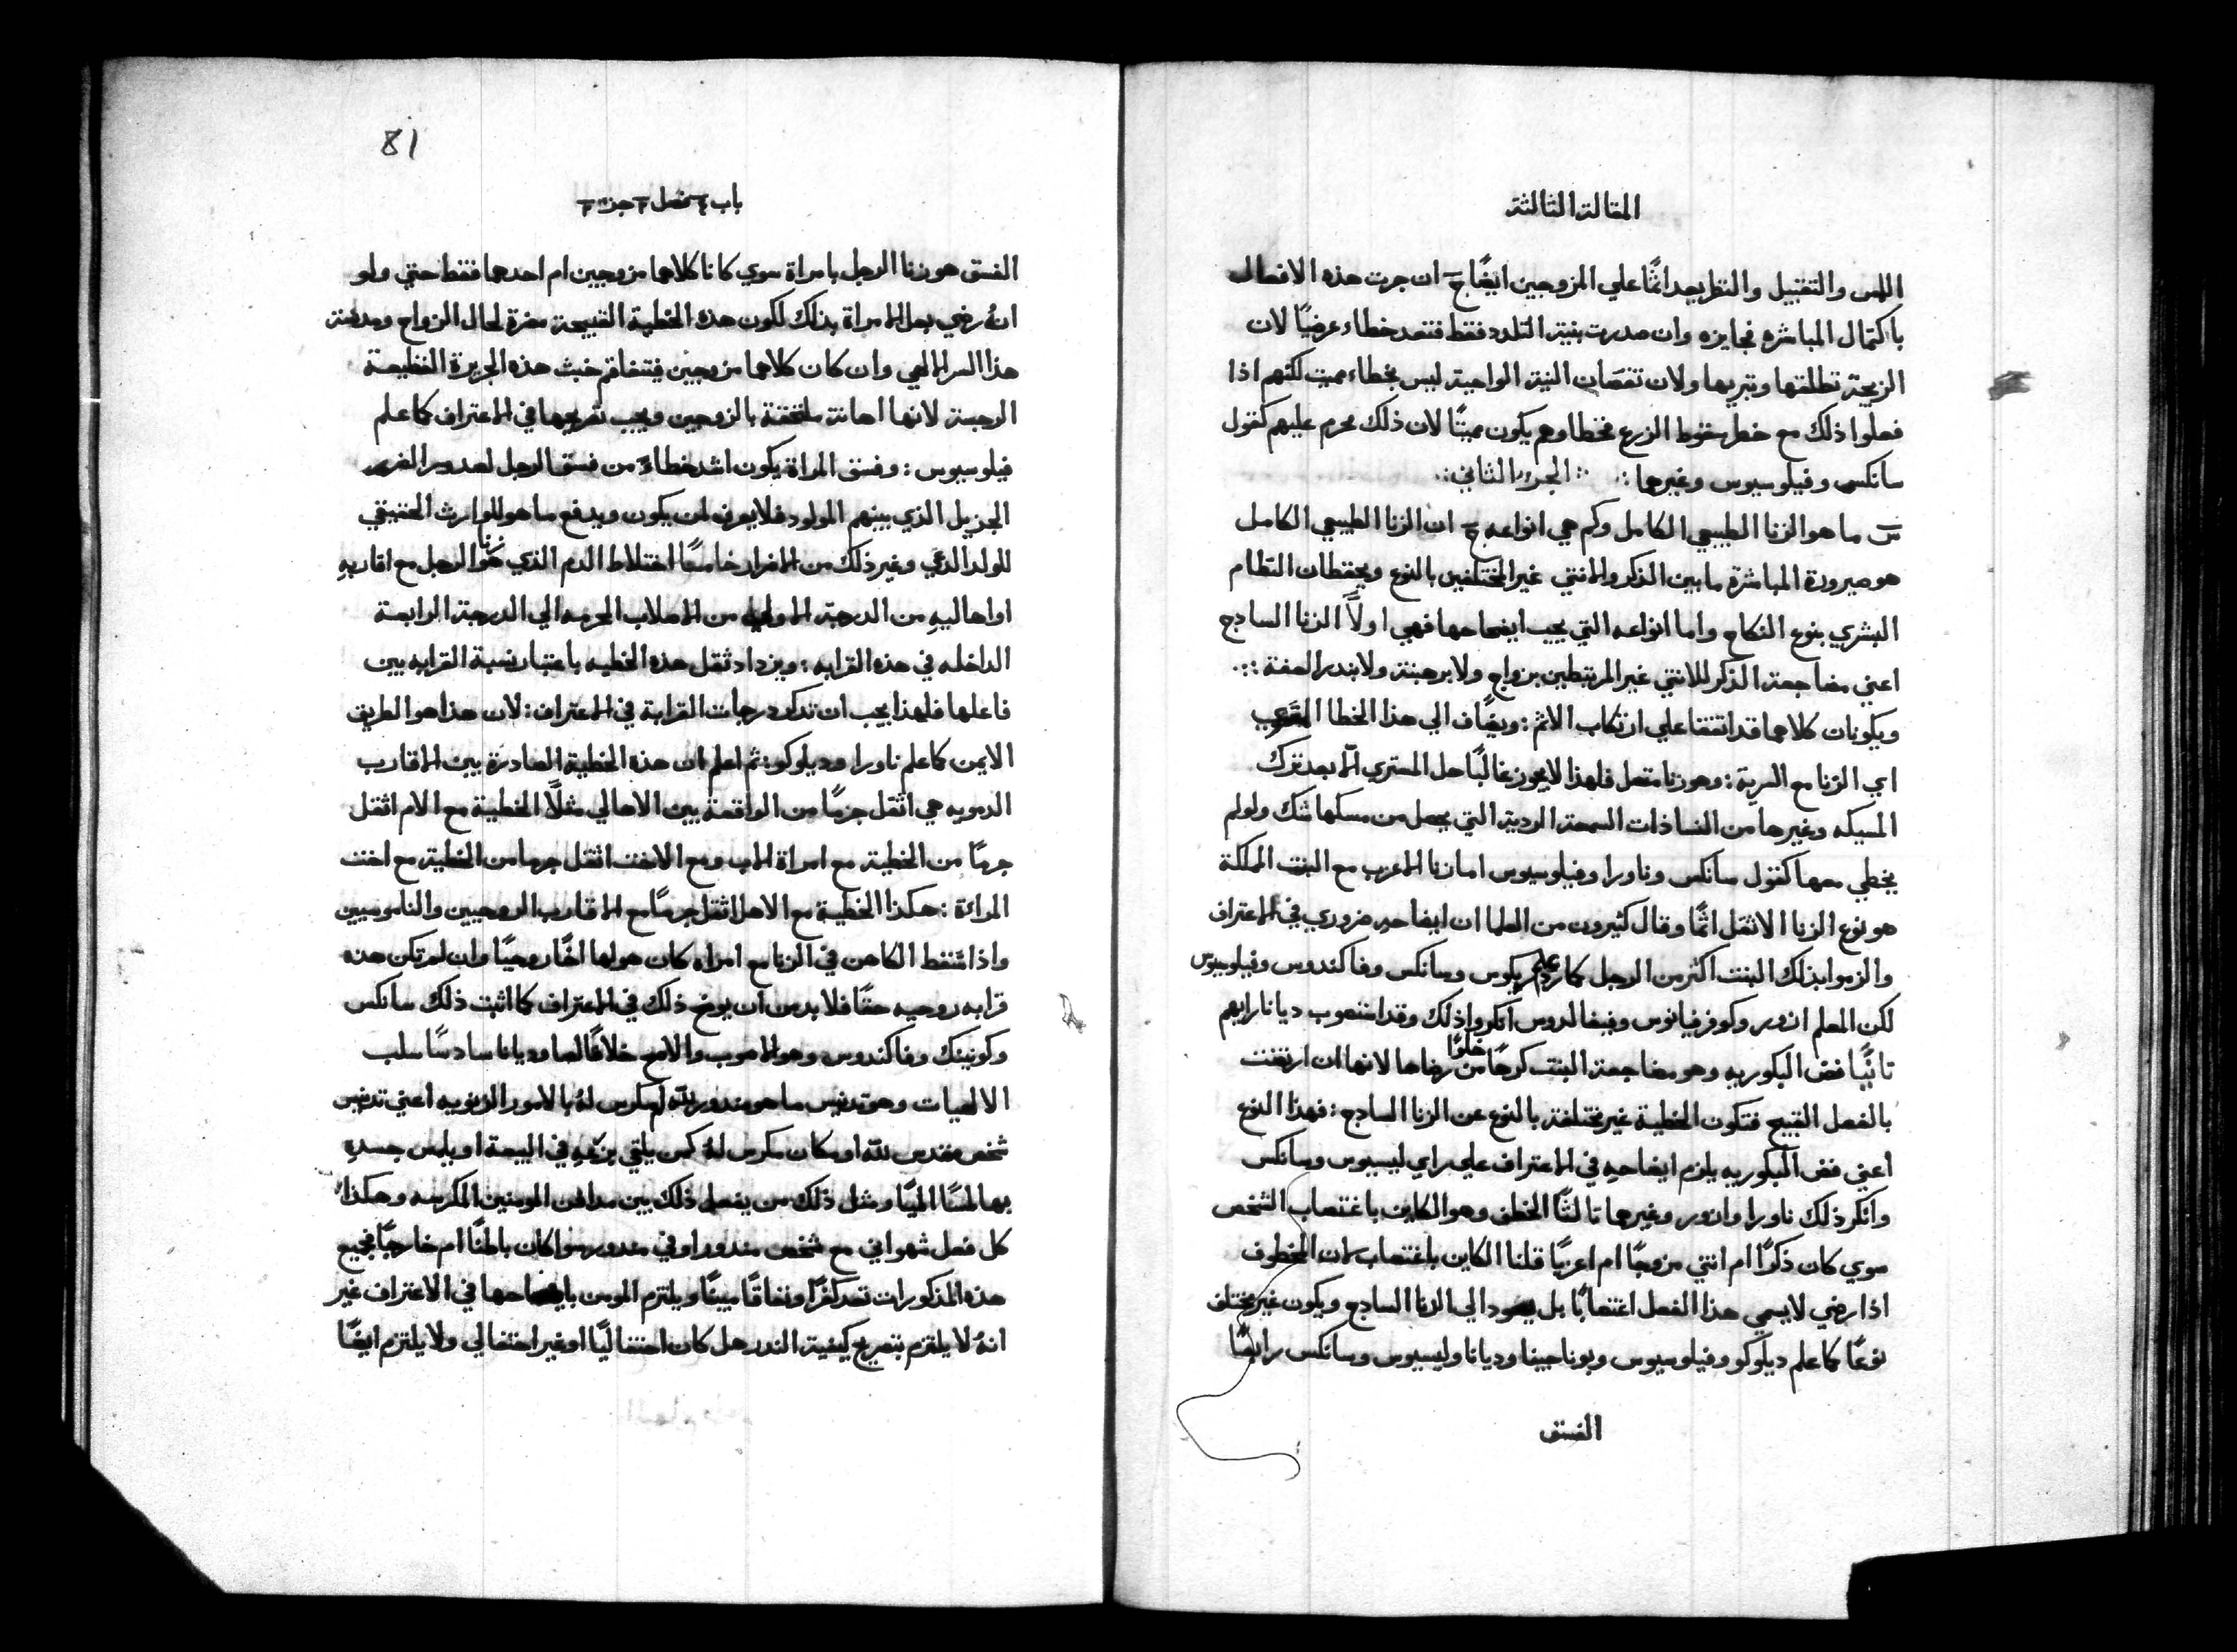 المقالة الثالثة
اللمس والتقبيل والنظر يعد اثمًا علي المزوجين ايضًا ج ان جرت هذه الافعال
باكتمال المباشره فجايزه وان صدرت بنية التلدد فقط فتعد خطاء عرضيًا لان
الزيجة تطلقها وتبربها ولان نقصان النية الواجبة ليس بخطاء مميت لكنهم اذا
فعلوا ذلك مع خطر سقوط الزرع فخطاوهم يكون مميتًا لان ذلك محرم عليهم كقول
سانكس وفيلوسيوس وغيرهما : الجزء الثاني
س ما هو الزنا الطبيعي الكامل وكم هي انواعه ج ان الزنا الطبيعي الكامل
هو صيرورة المباشرة ما بين الدكر والانتي غير المختلفين بالنوع ويحفظان النظام
البشري بنوع النكاح واما انواعه التي يجب ايضاحها فهي اولاً الزنا السادج
اعني مضاجعة الدكر للانتي غير المرتبطين بزواج ولا برهبنة ولا بندر العفة :
ويكونان كلاهما قد اتفقا علي ارتكاب الاثم : ويضاف الي هذا الخطا
اي الزنا مع السرية : وهو زنا متصل فلهذا لا يجوز غالبًا حل المستري الا بعد ترك
المسيكه وغيرها من النسا ذات السمعة الردية التي يحصل من مسكها شك ولو لم
يخطي معها كقول سانكس وناورا وفيلوسيوس اما زنا الاعزب مع البنت المملكة
هو نوع الزنا الاثقل اثمًا وقال كثيرون من العلما ان ايضاحه ضروري في الاعتراف
والزموا بذلك البنت اكثر من الرجل كما علم ردريكوس وسانكس وفاكندوس وفيلوسيوس
لكن المعلم اندور وكوفرفيانوس وفيفالدوس انكروا ذلك وقد استصوب ديانا رايهم
تانيًا فض البكوريه وهو مضاجعة البنت كرهًا خلوًا من رضاها لانها ان ارتضت
بالفعل القبيح فتكون الخطية غير مختلفة بالنوع عن الزنا السادج : فهذا النوع
اعني فض البكوريه يلزم ايضاحه في الاعتراف علي راي ليسيوس وسانكس
وانكر ذلك ناورا واندور وغيرهما تالتًا الخطف وهو الكاين باغتصاب الشخص
سوي كان ذكرًا ام انتي مزوجًا ام اعزبًا قلنا الكاين باغتصاب لان المخطوف
اذا رضي لا يسمي هذا الفعل اغتصابًا بل يعود الي الزنا السادج ويكون غير مختلف
نوعًا كما علم ديلوكو وفيلوسيوس وبوناجينا وديانا وليسيوس وسانكس رابعًا
الفسق
81
باب ٤ فصل ٢ جزء ٢
الفسق هو زنا الرجل بامراة سوي كانا كلاهما مزوجين ام احدهما فقط حتي ولو
انهُ رضي بعل الامراة بذلك لكون هذه الخطية القبيحة مضرة لحال الزواج ومدنسة
هذا السر الالهي وان كان كلاهما مزوجين فيتفاقم خبث هذه الجريرة الفظيعة
الرجسة لانها اهانة ملتحقة بالزوجين ويجب تصريحها في الاعتراف كما علم
فيلوسيوس : وفسق المراة يكون اشد خطاءً من فسق الرجل لصدور الضرر
الجزيل الذي بينهم المولود فلا يعرف لمن يكون ويدفع ما هو للوارث الحقيقي
للولد الدعي وغير ذلك من الاضرار خامسًا اختلاط الدم الذي هو زنا الرجل مع اقاربهِ
او اهاليهِ من الدرجة الاولي من الاصلاب المحرمه الي الدرجة الرابعة
الداخله في هذه القرابه : ويزداد ثقل هذه الخطيه باعتبار نسبة القرابه بين
فاعلها فلهذا يجب ان تدكر درجات القرابة في الاعتراف : لان هذا هو الطريق
الايمن كما علم ناورا وديلوكو : ثم اعلم ان هذه الخطية الصادرة بين الاقارب
الدمويه هي اثقل جرمًا من الواقعة بين الاهالي مثلاً الخطية مع الام اثقل
جرمًا من الخطية مع امراة الاب ومع الاخت اثقل جرما من الخطية مع اخت
المراة : هكذا الخطية مع الاهل اثقل جرمًا مع الاقارب الروحيين والناموسيين
واذا سقط الكاهن في الزنا مع امراه كان هو لها اخًا روحيًا وان لم تكن هذه
قرابه روحيه حقًا فلا بد من ان يوضح ذلك في الاعتراف كما اثبت ذلك سانكس
وكونينك وفاكندوس وهو الاصوب والاصح خلافًا لصا وديانا سادسًا سلب
الالهيات وهو تدنيس ما هو مندور لله او مكرس لهُ بالامور الزنويه اعني تدنيس
شخص مقدس لله او مكان مكرس لهُ كمن يلقي بزرعهِ في البيعة او يلمس جسدهِ
بها لمسًا المًيا ومثل ذلك من يفعل ذلك بين مدافن المومنين المكرسه وهكذا
كل فعل شهواني مع شخص مندور او في مندور سوا كان باطنًا ام خارجيًا فجميع
هذه المذكورات تعد كفرًا ونفاقًا مميتًا ويلتزم المومن بايضاحها في الاعتراف غير
انهُ لا يلتزم بتصريح كيفية الندر هل كان احتفاليًا او غير احتفالي ولا يلتزم ايضًا